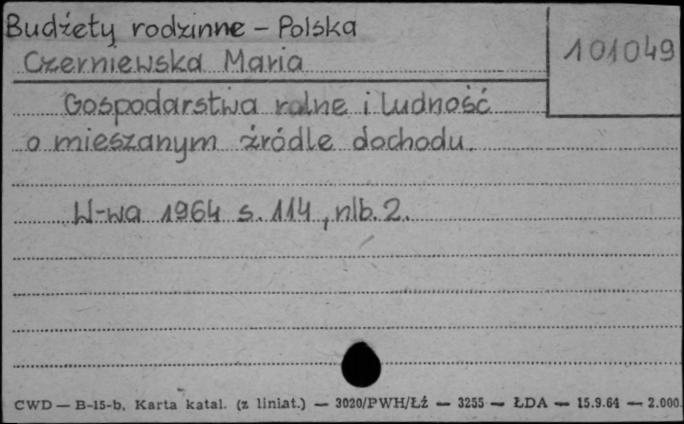 Budżety rodzinne - Polska
101049
Czerniewska Maria
Gospodarstwa rolne i ludność
o mieszanym źródle dochodu.
W-wa 1964 s. 114, nlb. 2.
CWD — B-15-b. Karta katal. (z liniat.) — 3020/PWH/Łź — 3255 — ŁDA — 15.9.64 — 2.000.